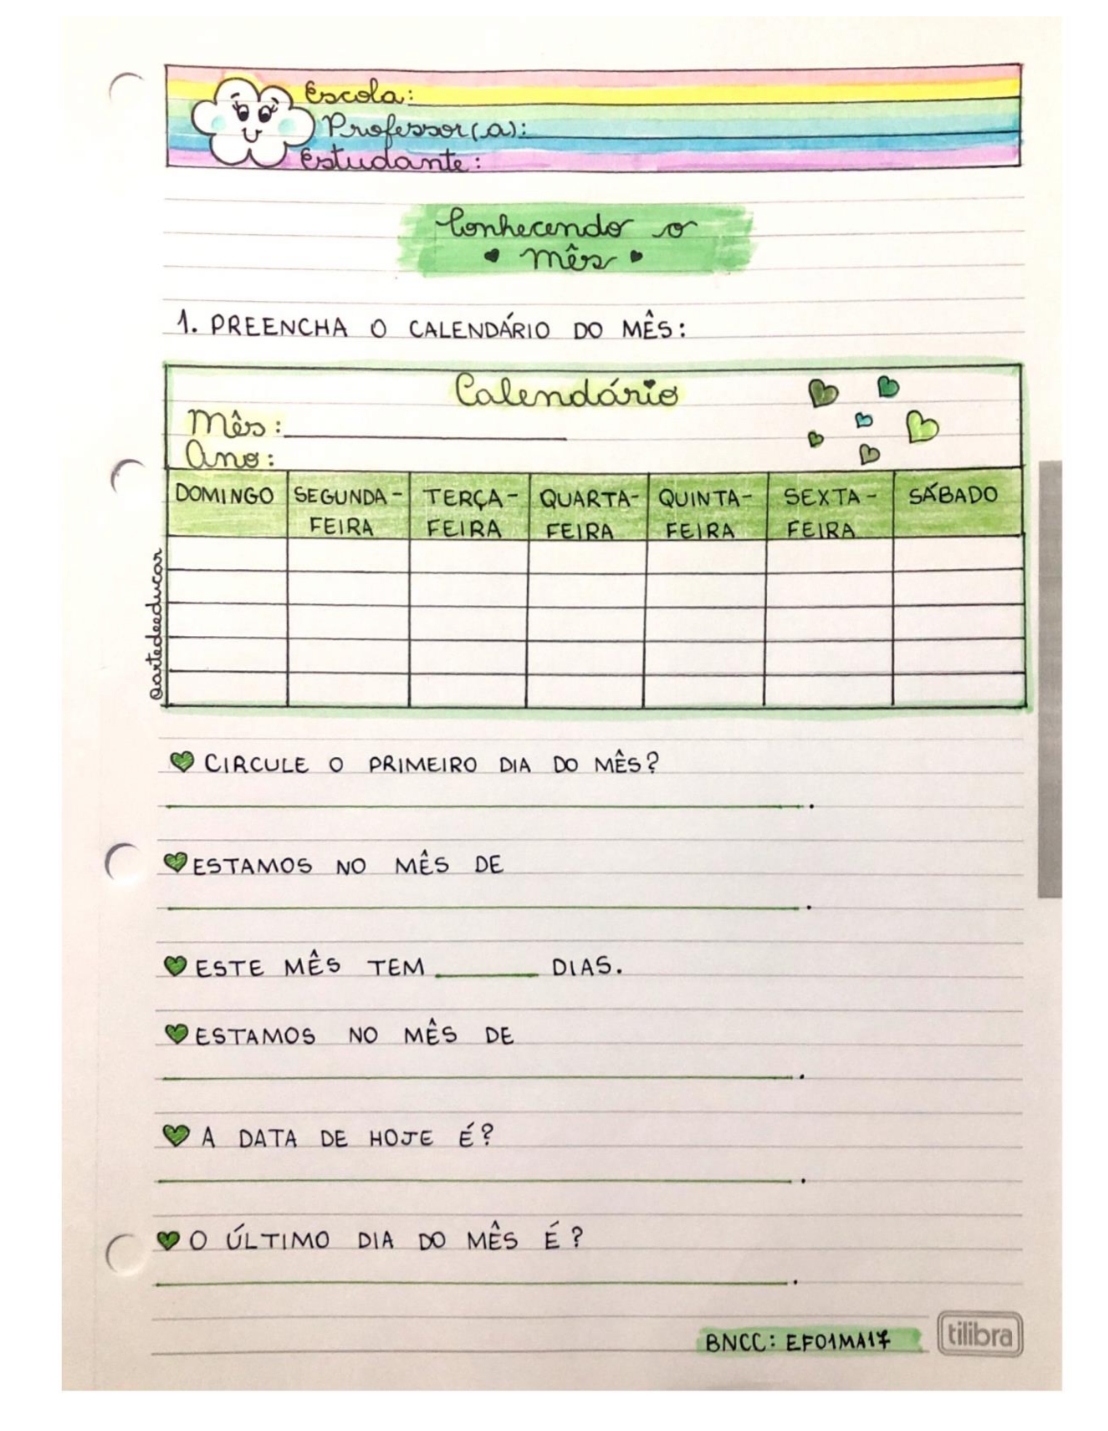 Escola:
Professor(a):
Estudante:
Conhecendo o
mês
1. PREENCHA O CALENDÁRIO DO MÊS:
Calendário
Mês:
Ano:
DOMINGO SEGUNDA-FEIRA TERÇA-FEIRA QUARTA-FEIRA QUINTA-FEIRA SEXTA-FEIRA SÁBADO
@artedeeducar
CIRCULE O PRIMEIRO DIA DO MÊS?
ESTAMOS NO MÊS DE
ESTE MÊS TEM ______ DIAS.
ESTAMOS NO MÊS DE
A DATA DE HOJE É?
O ÚLTIMO DIA DO MÊS É?
BNCC: EF01MA17
tilibra